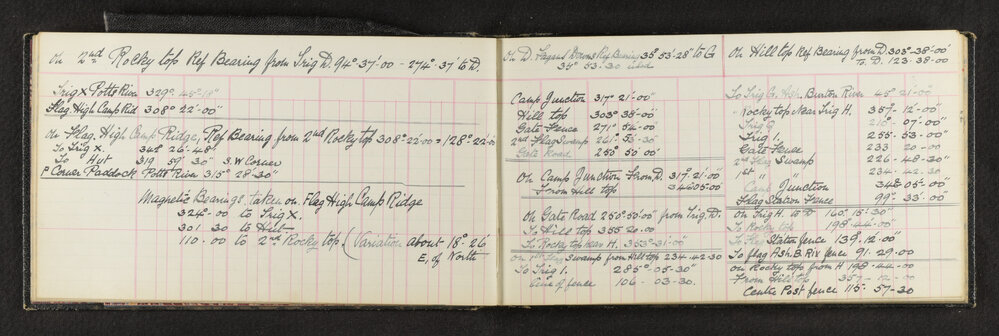 On 2nd Rocky top Ref Bearing from Trig D. 94°-37'-00 - 274°-37' to D.
Trig X Potts River 329° 45' 10"
Flag High Camp Rid 308° 22'-00"
On Flag. High Camp Ridge, Ref Bearing from 2nd Rocky top 308°-22'-00 + 128°-22'-00
To Trig X. 342° 26'-48"
To Hut 319 59' 30" S.W Corner
F Corner Paddock Potts River 315° 28'-30"
Magnetic Bearings taken on Flag High Camp Ridge
324°-00 to Trig X.
301 30 to Hut
110.00 to 2nd Rocky top (Variation about 18° 26'
E. of North
On D. Ref Bearing 35° 53'-28" to G
35° 53-30
Camp Junction 317° 21'-00"
Hill top 303° 38'-00
Gate Fence 271° 54-00
2nd Flag Swamp 261° 53-30
Gate Road 250° 50 00'
On Camp Junction From D. 317° 21-00"
From Hill top 346° 05 00
On Gate Road 250°-50'-00" from Trig. D.
To Hill top 355° 20.00
To Rocky top near H. 353°-31'-00"
On 1st Flag Swamp from Hill top 234-42-30
To Trig 1. 285°-05-30"
Line of fence 106-03-30.
On Hill top Ref Bearing from D. 303°-38'-00"
to D. 123-38-00
To Trig G. Ash. Burton River 45° 21-00
Rocky top near Trig H. 357-12-00"
Trig G 210°-07-00"
Trig 1. 255-53-00"
Gate Fence 233 20-00
2nd Flag Swamp 226-48-30"
1st " " 234-42.30
Camp Junction 346-05-00"
Flag Station Fence 99°-33-00"
On Trig H. to D 160° 15'-30"
To Rocky top 198°-44-00"
To Flag Station fence 139°-12-00"
To flag Ash. B. Riv fence 91-29.00
On Rocky top from H 198-44-00
From Hill top 357-12-00
Centre Post fence 115-57-30